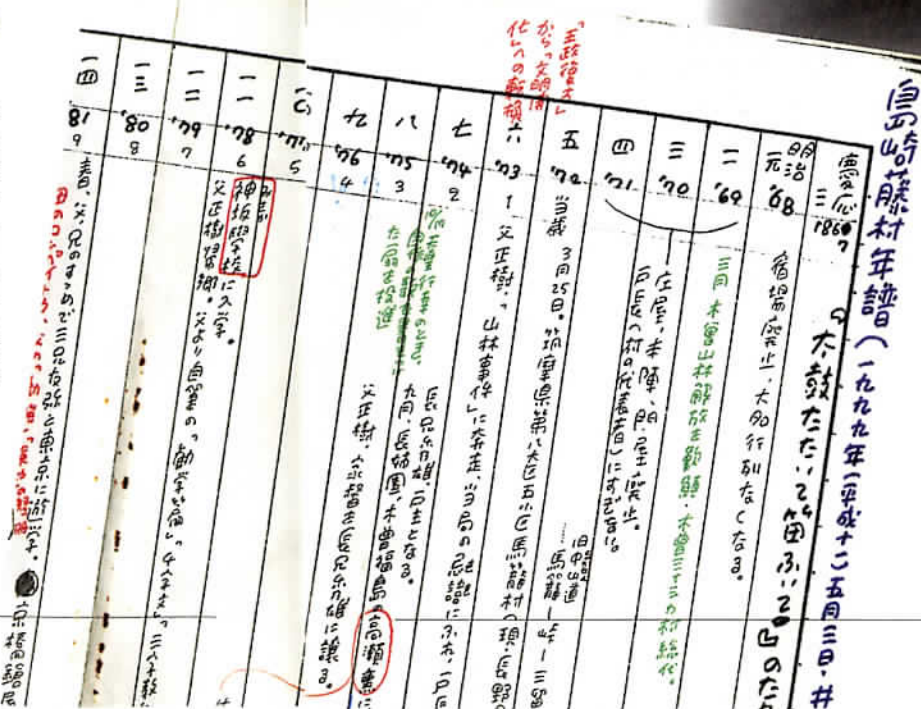 島崎藤村年譜(一九九九年(平成十一)五月三日・井
慶応三 1867
『太鼓たたいて笛ふいて』のた
明治元 '68
宿場廃止、大名行列なくなる。
二 '69
三月 木曾山林解放を歎願・木曾三十三カ村総代。
三 '70
庄屋、本陣、問屋廃止。
戸長(村の代表者)にすぎない。
四 '71
旧中山道
……馬籠―峠―三留
五 '72 当歳 3月25日。筑摩県第八大区五小区馬籠村(現・長野
「王政復古」
から「文明開
化」への転換
六 '73 1 父正樹、「山林事件」に奔走、当局の忌諱にふれ、戸長
七 '74 2
長兄秀雄、戸主となる。
八 '75 3
九月、長姉園、木曾福島の高瀬薫に
た扇を投進
九 '76 4
父正樹、家督を長兄秀雄に譲る。
一〇 '77 5
一一 '78 6
神坂学校に入学。
父正樹帰郷。父より自筆の「勧学篇」「千字文」「三字経
一二 '79 7
一三 '80 8
一四 '81 9
春、父、兄のすすめで三兄友弥と東京に遊学。
京橋鎗屋